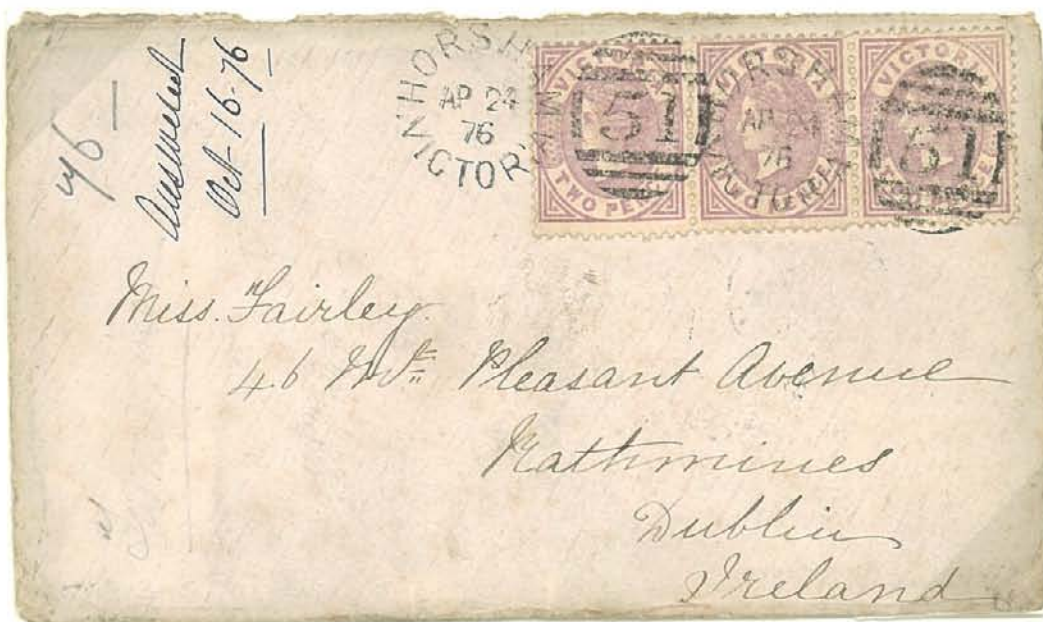 Answered
Oct-16-76
HORSHAM
AP 24
76
VICTORIA
VICTORIA
TWO PENCE
51
HORSHAM
AP 24
76
VICTORIA
VICTORIA
51
Miss. Fairley.
46 Mt. Pleasant Avenue
Rathmines
Dublin
Ireland